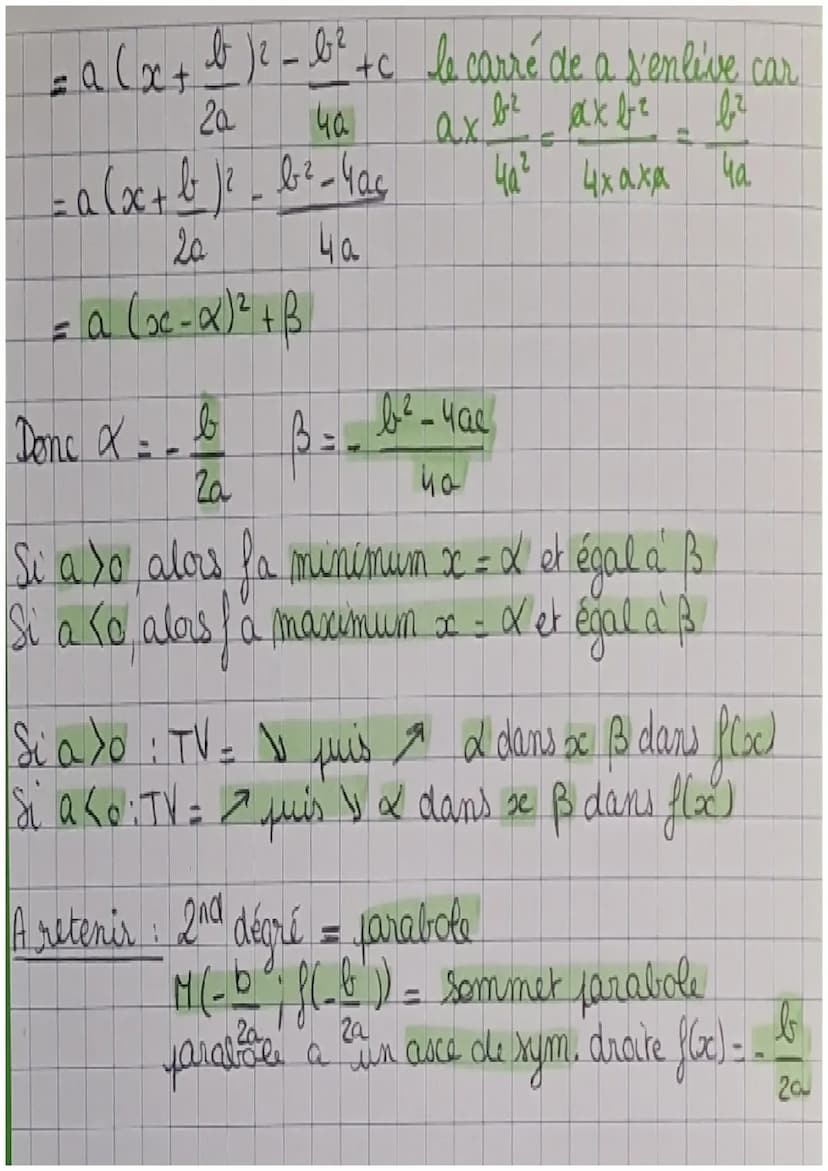 = a (x + b/2a)² - b²/4a + c le carré de a s'enlève car
a x b²/4a² = a x b²/4 x a x a = b²/4a
= a (x + b/2a)² - b² - 4ac/4a
= a (x - α)² + β
Donc α = - b/2a β = - b² - 4ac/4a
Si a > 0, alors f a minimum x = α et égal à β
Si a < 0, alors f a maximum x = α et égal à β
Si a > 0 : TV = ↘ puis ↗ α dans x β dans f(x)
Si a < 0 : TV = ↗ puis ↘ α dans x β dans f(x)
A retenir : 2nd dégré = parabole
M (- b/2a ; f(- b/2a)) = sommet parabole
parabole a un axe de sym. droite f(x) = - b/2a